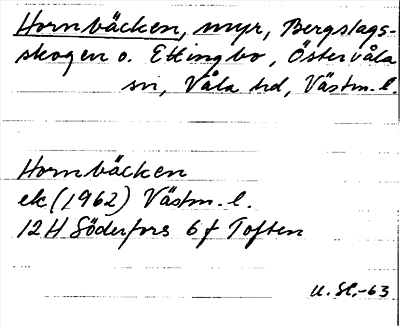 Hornbäcken, myr, Bergslags-
skogen o. Ettingbo, Östervåla
sn, Våla hd, Västm. l.
Hornbäcken
ek (1962) Västm. l.
12 H Söderfors 6 f Toften
U. Sl. -63